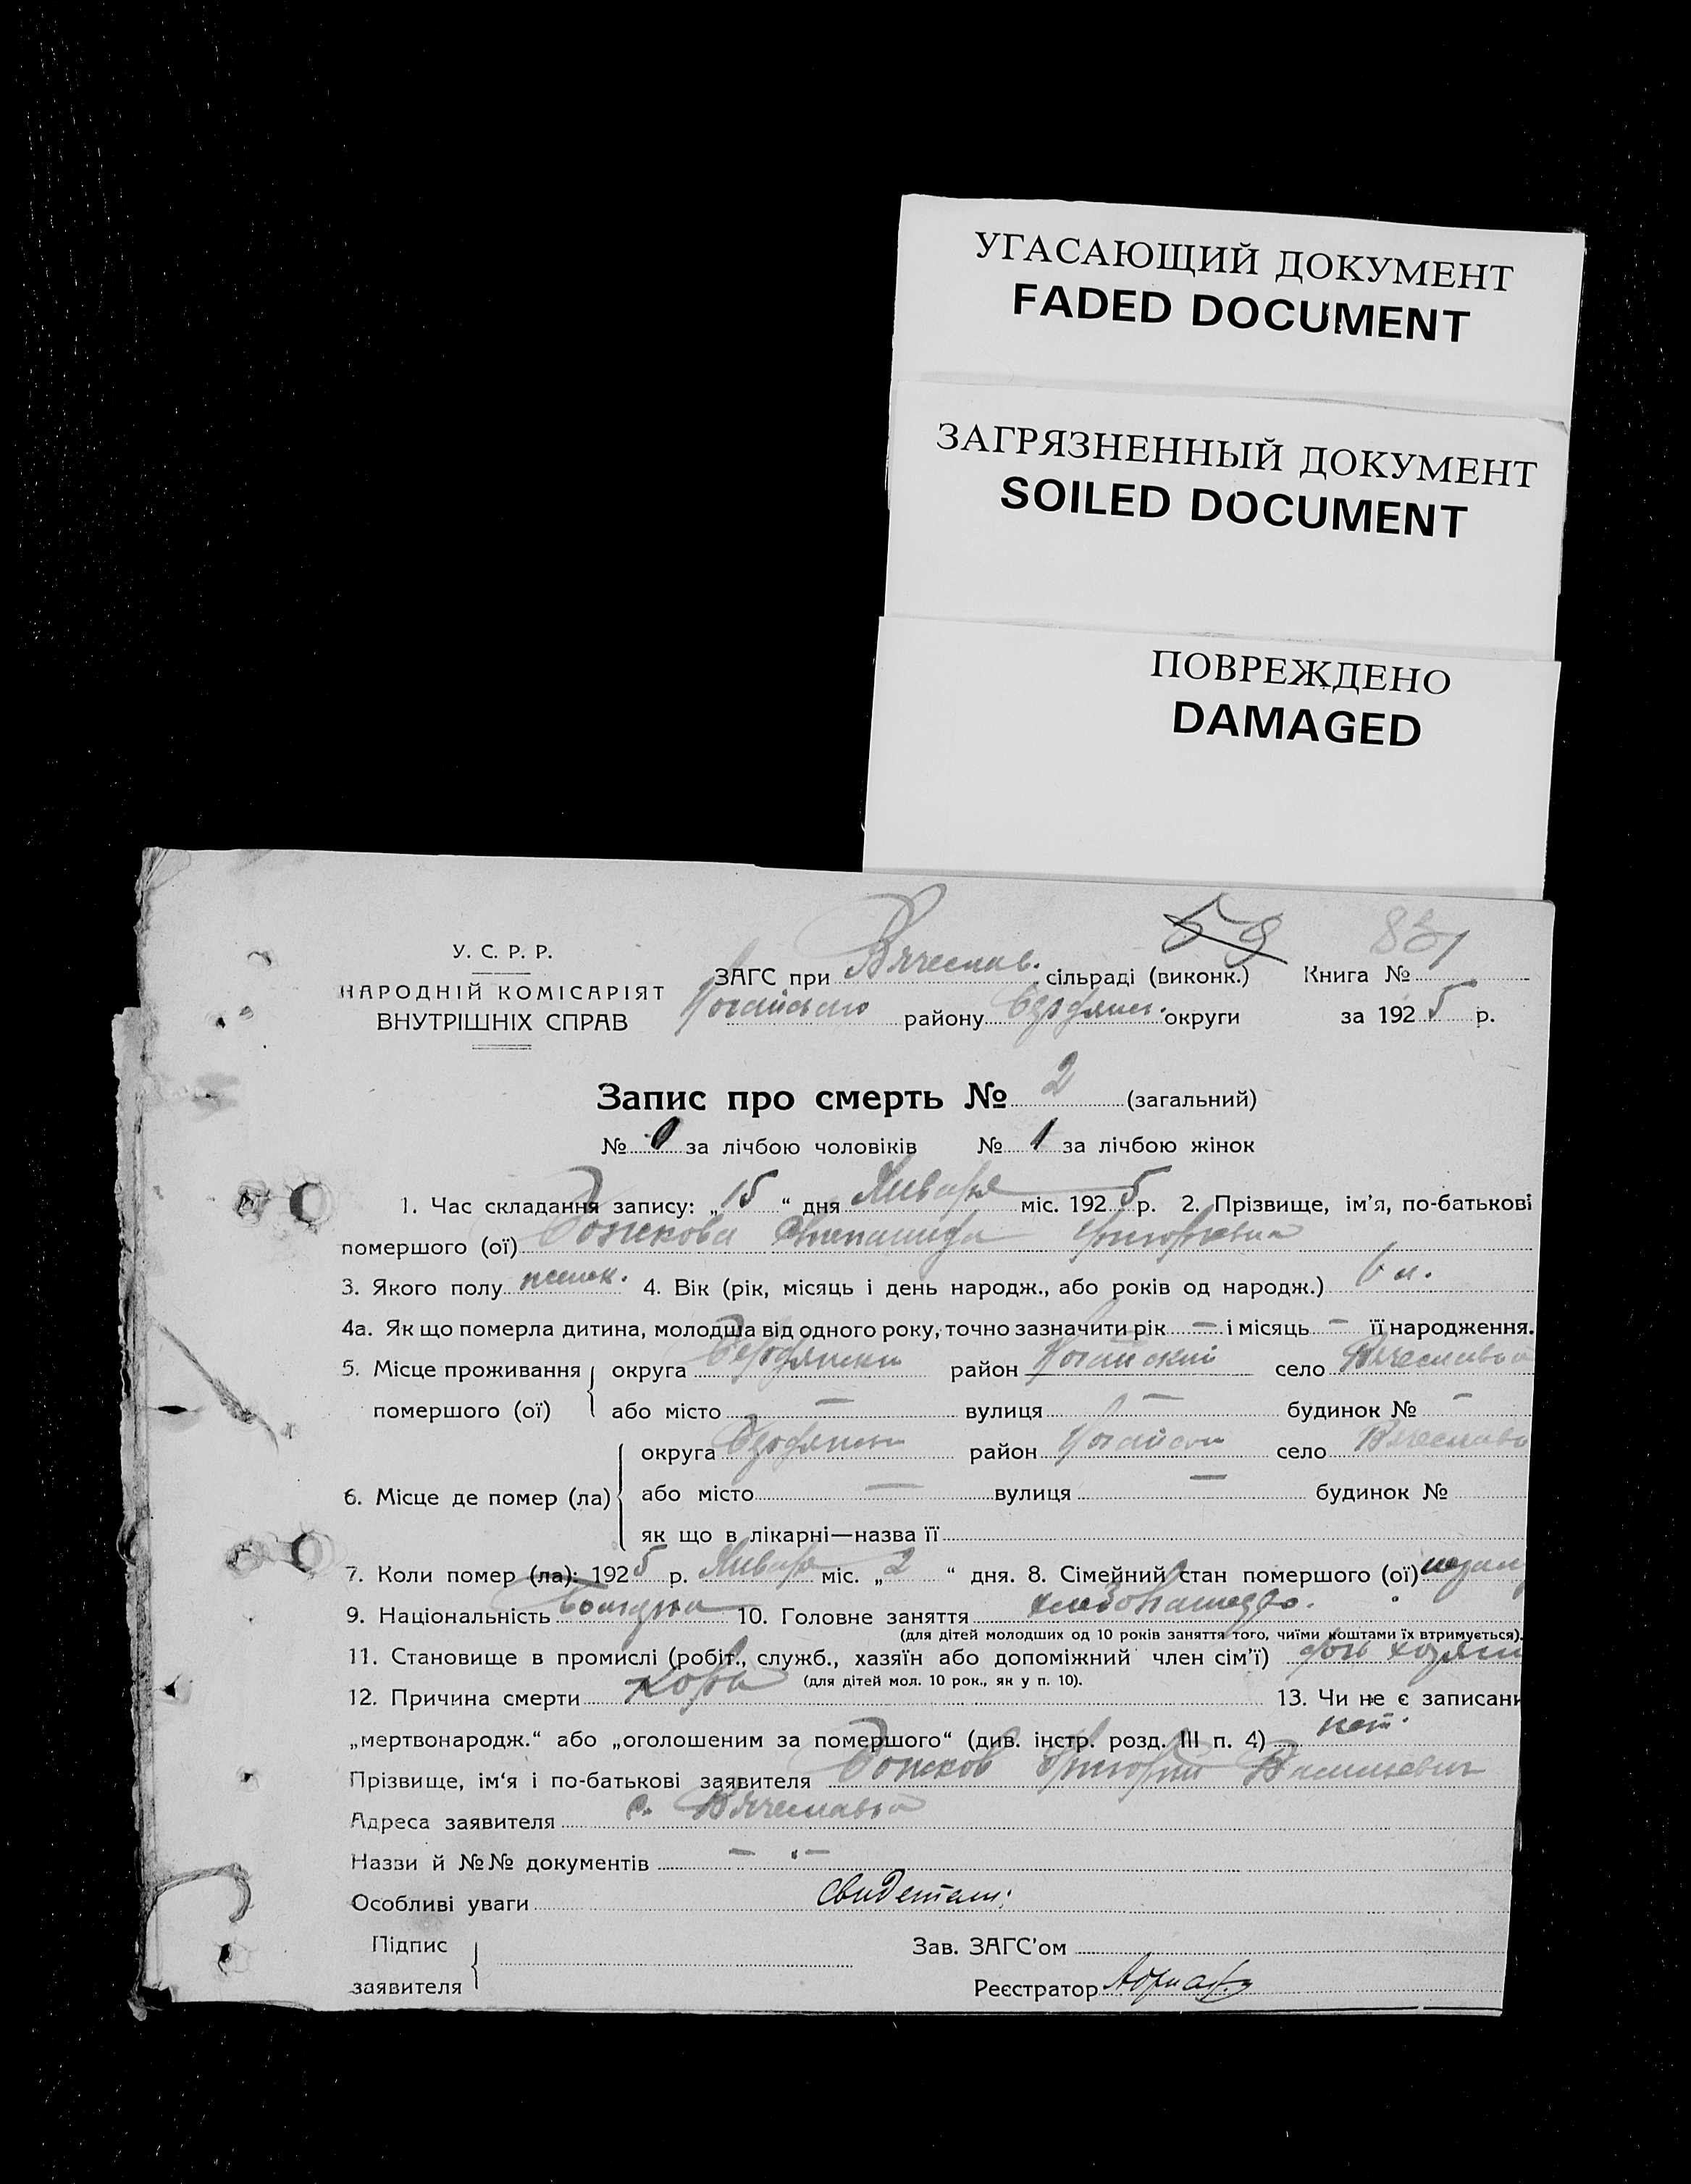 УГАСАЮЩИЙ ДОКУМЕНТ
FADED DOCUMENT
ЗАГРЯЗНЕННЫЙ ДОКУМЕНТ
SOILED DOCUMENT
ПОВРЕЖДЕНО
DAMAGED
59
У. С. Р. Р.
НАРОДНІЙ КОМІСАРІЯТ
ВНУТРІШНІХ СПРАВ
ЗАГС при Вячеслав. сільраді (виконк.) Книга №
Ногайского району Бердянск. округи за 1925 р.
Запис про смерть № 2 (загальний)
№ 0 за лічбою чоловіків № 1 за лічбою жінок
1. Час складання запису: „15“ дня Января міс. 1925 р. 2. Прізвище, ім’я, по-батькові
помершого (ої) Григорьевна
3. Якого полу женск. 4. Вік (рік, місяць і день народж., або років од народж.)
4а. Як що померла дитина, молодша від одного року, точно зазначити рік — і місяць — її народження.
5. Місце проживання помершого (ої) округа Бердянски район Ногайский село Вячеславка
або місто — вулиця — будинок № —
6. Місце де помер (ла) округа Бердянски район Ногайски село Вячеславка
або місто — вулиця — будинок №
як що в лікарні—назва її
7. Коли помер (ла): 1925 р. Января міс. „2“ дня. 8. Сімейний стан помершого (ої)
9. Національність 10. Головне заняття хлебопашество.
(для дітей молодших од 10 років заняття того, чиїми коштами їх втримується).
11. Становище в промислі (робіт., служб., хазяїн або допоміжний член сім’ї) дочь хозяин
(для дітей мол. 10 рок., як у п. 10).
12. Причина смерти Корь 13. Чи не є записани
„мертвонародж.“ або „оголошеним за помершого“ (див. інстр. розд. III п. 4) нет.
Прізвище, ім‘я і по-батькові заявителя Григорий Васильевич
Адреса заявителя с. Вячеславка
Назви й №№ документів — „ —
Особливі уваги
Підпис заявителя
Зав. ЗАГС’ом
Реєстратор